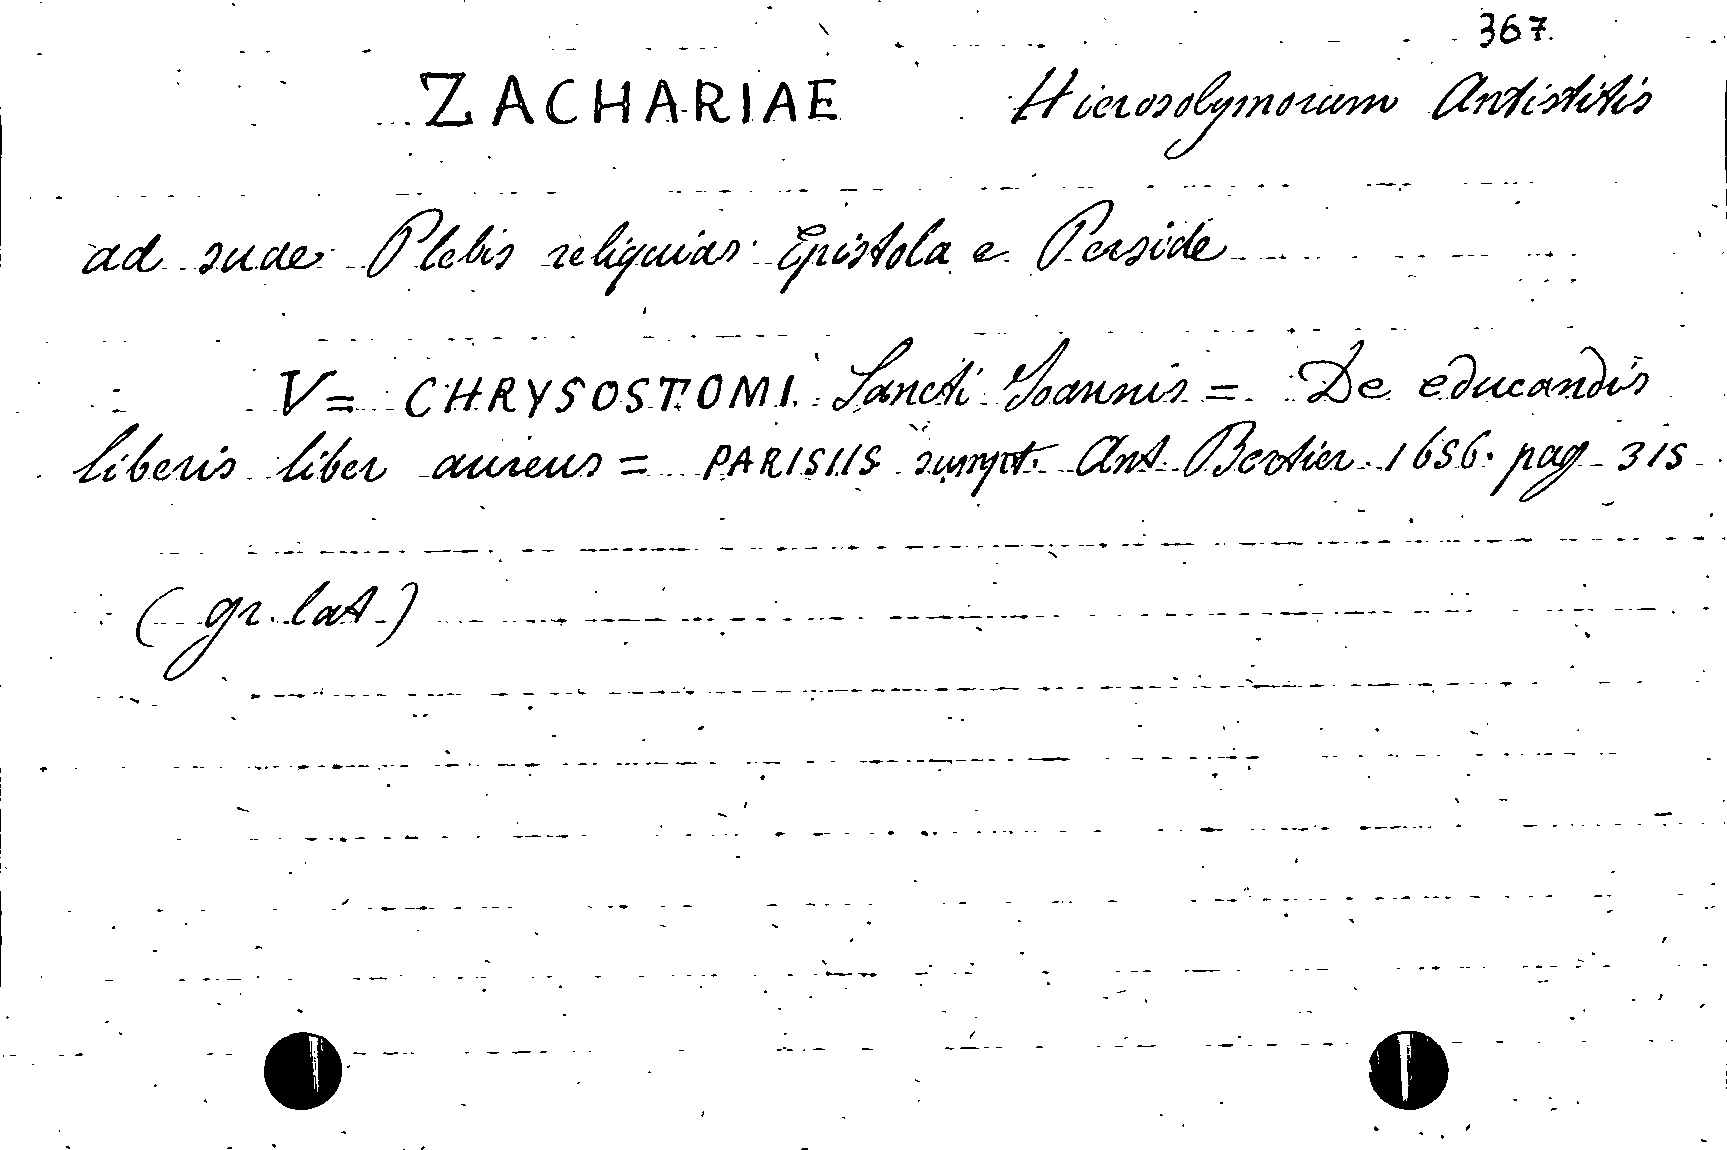 367.
ZACHARIAE Hierosolymorum Antistitis
ad suae Plebis reliquias Epistola e Perside
V = CHRYSOSTOMI Sancti Joannis = De educandis
liberis liber aureus = PARISIIS sumpt. Ant. Bertier 1656. pag 315
(gr. lat.)